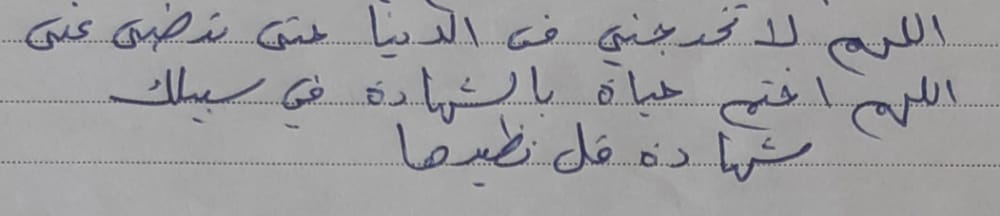 اللهم لا تخرجني من الدنيا حتى ترضى عني
اللهم اختم حياة بالشهادة في سبيلك
شهادة قل نظيرها